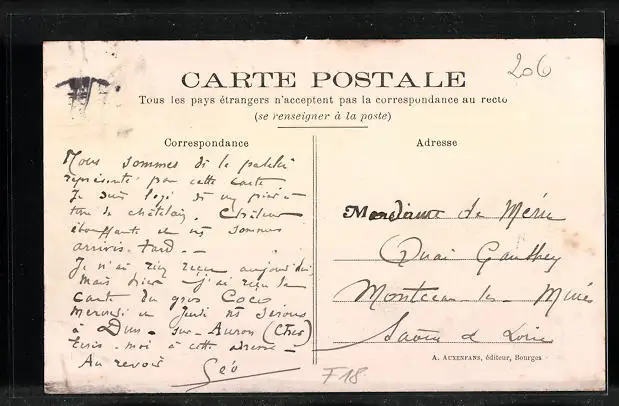 206
CARTE POSTALE
Tous les pays étrangers n'acceptent pas la correspondance au recto
(se renseigner à la poste)
Correspondance
Adresse
Nous sommes de la
représenté par cette carte
Je suis logé
de châtelain. Chaleur
étouffante et ns sommes
arrivés tard. —
Je n'ai rien reçu aujourd'hui
mais hier j'ai reçu la
carte du gros Coco
Mercredi et Jeudi ns serons
à Dun-sur-Auron (Cher)
Ecris-moi à cette adresse —
Au revoir
Géo
Madame de
Quai Gauthey
Montceau-les-Mines
Saône et Loire
A. AUXENFANS, éditeur, Bourges
F18